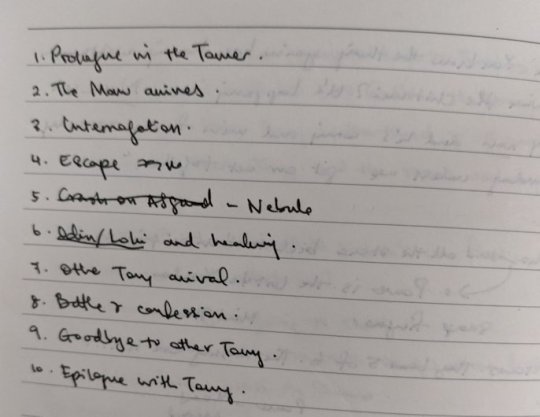 1. Prologue in the Tower.
2. The Maw arrives.
3. Interrogation.
4. Escape
5. Crash on Asgard - Nebula
6. Odin/Loki and healing.
7. Other Tony arrival.
8. Battle & confession.
9. Goodbye to other Tony.
10. Epilogue with Tony.